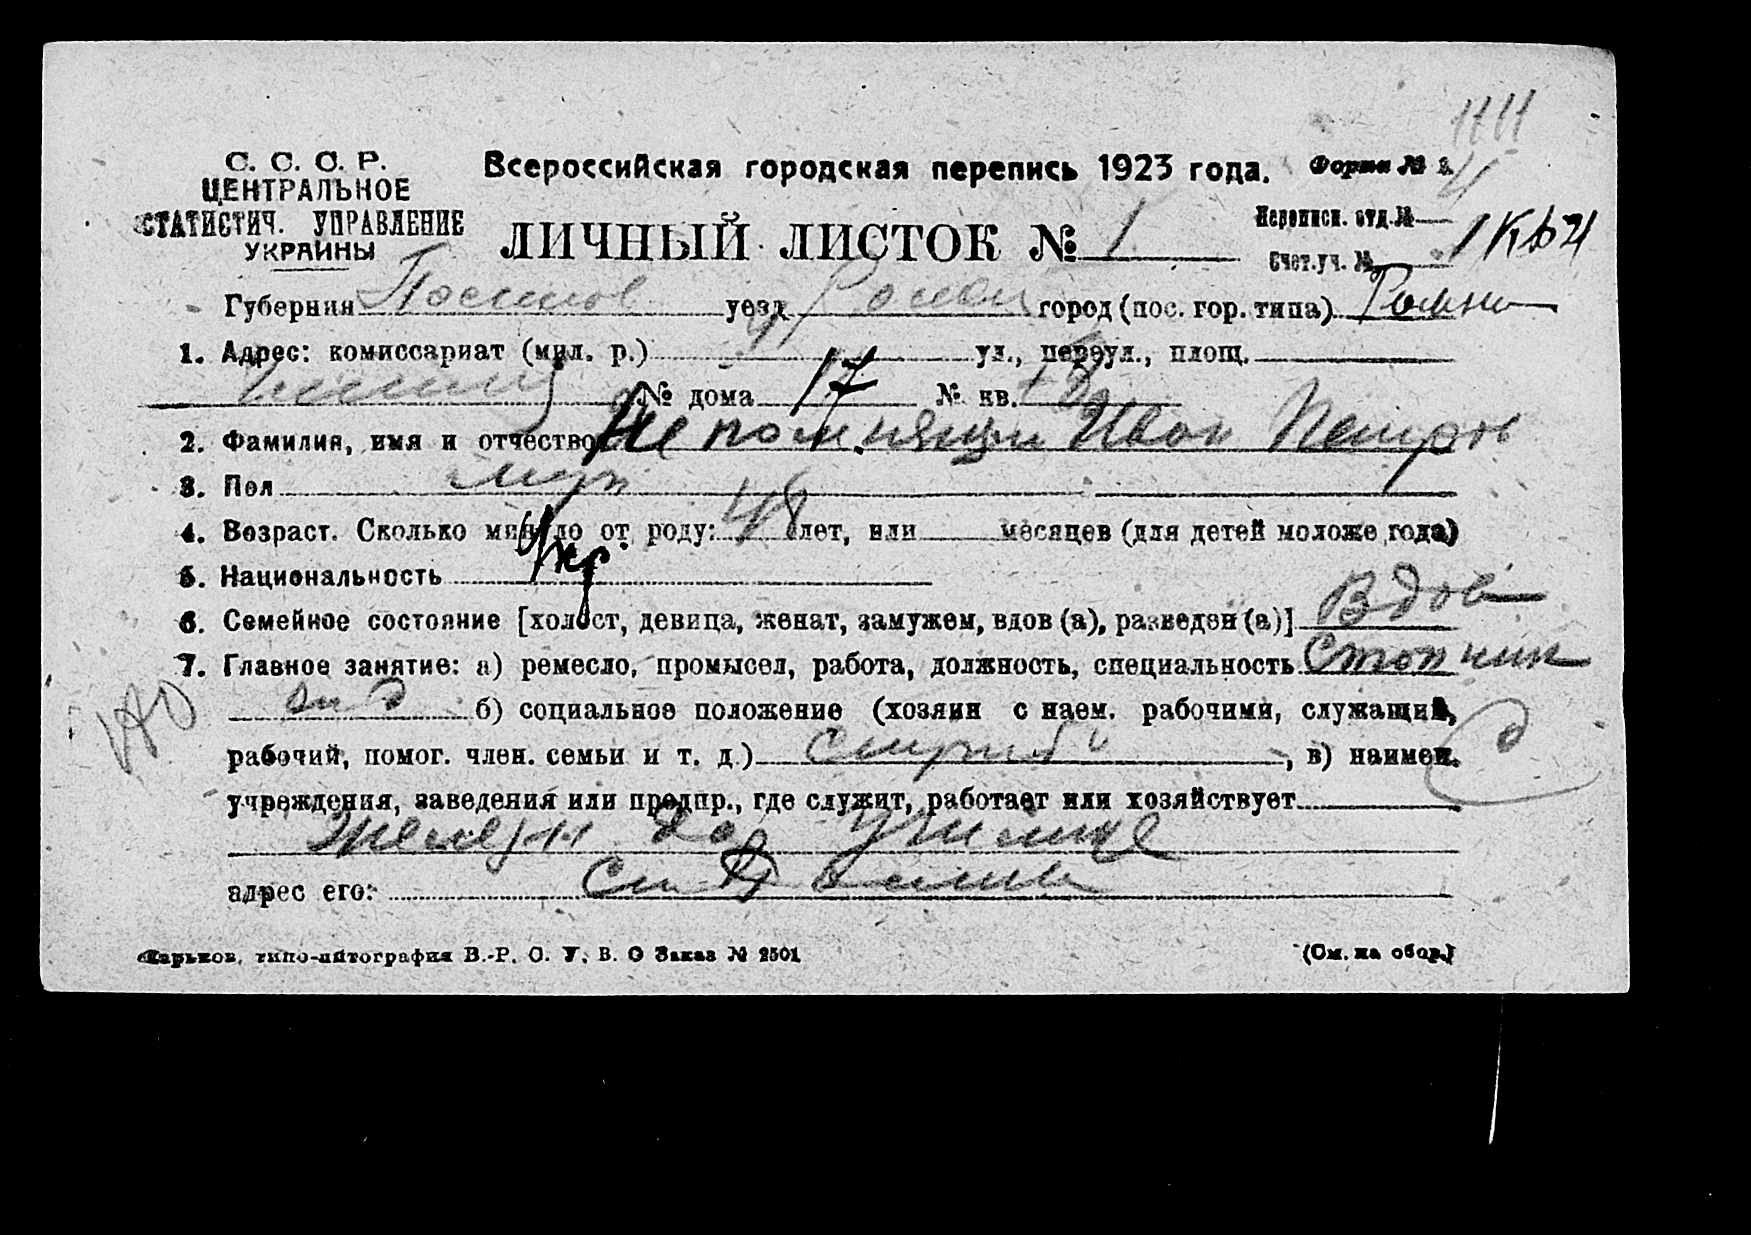 С. С. С. Р.
ЦЕНТРАЛЬНОЕ
СТАТИСТИЧ. УПРАВЛЕНИЕ
УКРАИНЫ
Всероссийская городская перепись 1923 года.
Форма № 2.
ЛИЧНЫЙ ЛИСТОК № 1
Переписн. отд. №
Счет. уч. №
Губерния уезд город (пос. гор. типа) Ромни
1. Адрес: комиссариат (мил. р.) ул., переул., площ.
№ дома 17 № кв.
2. Фамилия, имя и отчество Непомнящи Иван Петров
3. Пол муж
4. Возраст. Сколько минуло от роду: 48 лет, или месяцев (для детей моложе года)
5. Национальность Укр.
6. Семейное состояние [холост, девица, женат, замужем, вдов (а), разведен (а)] Вдов
7. Главное занятие: а) ремесло, промысел, работа, должность, специальность
б) социальное положение (хозяин с наем. рабочими, служащий,
рабочий, помог. член. семьи и т. д.) , в) наимен.
учреждения, заведения или предпр., где служит, работает или хозяйствует
Железн дор училище
адрес его:
Харьков, типо-литография В.-Р. О. У. В. О Заказ № 2501
(См. на обор.)